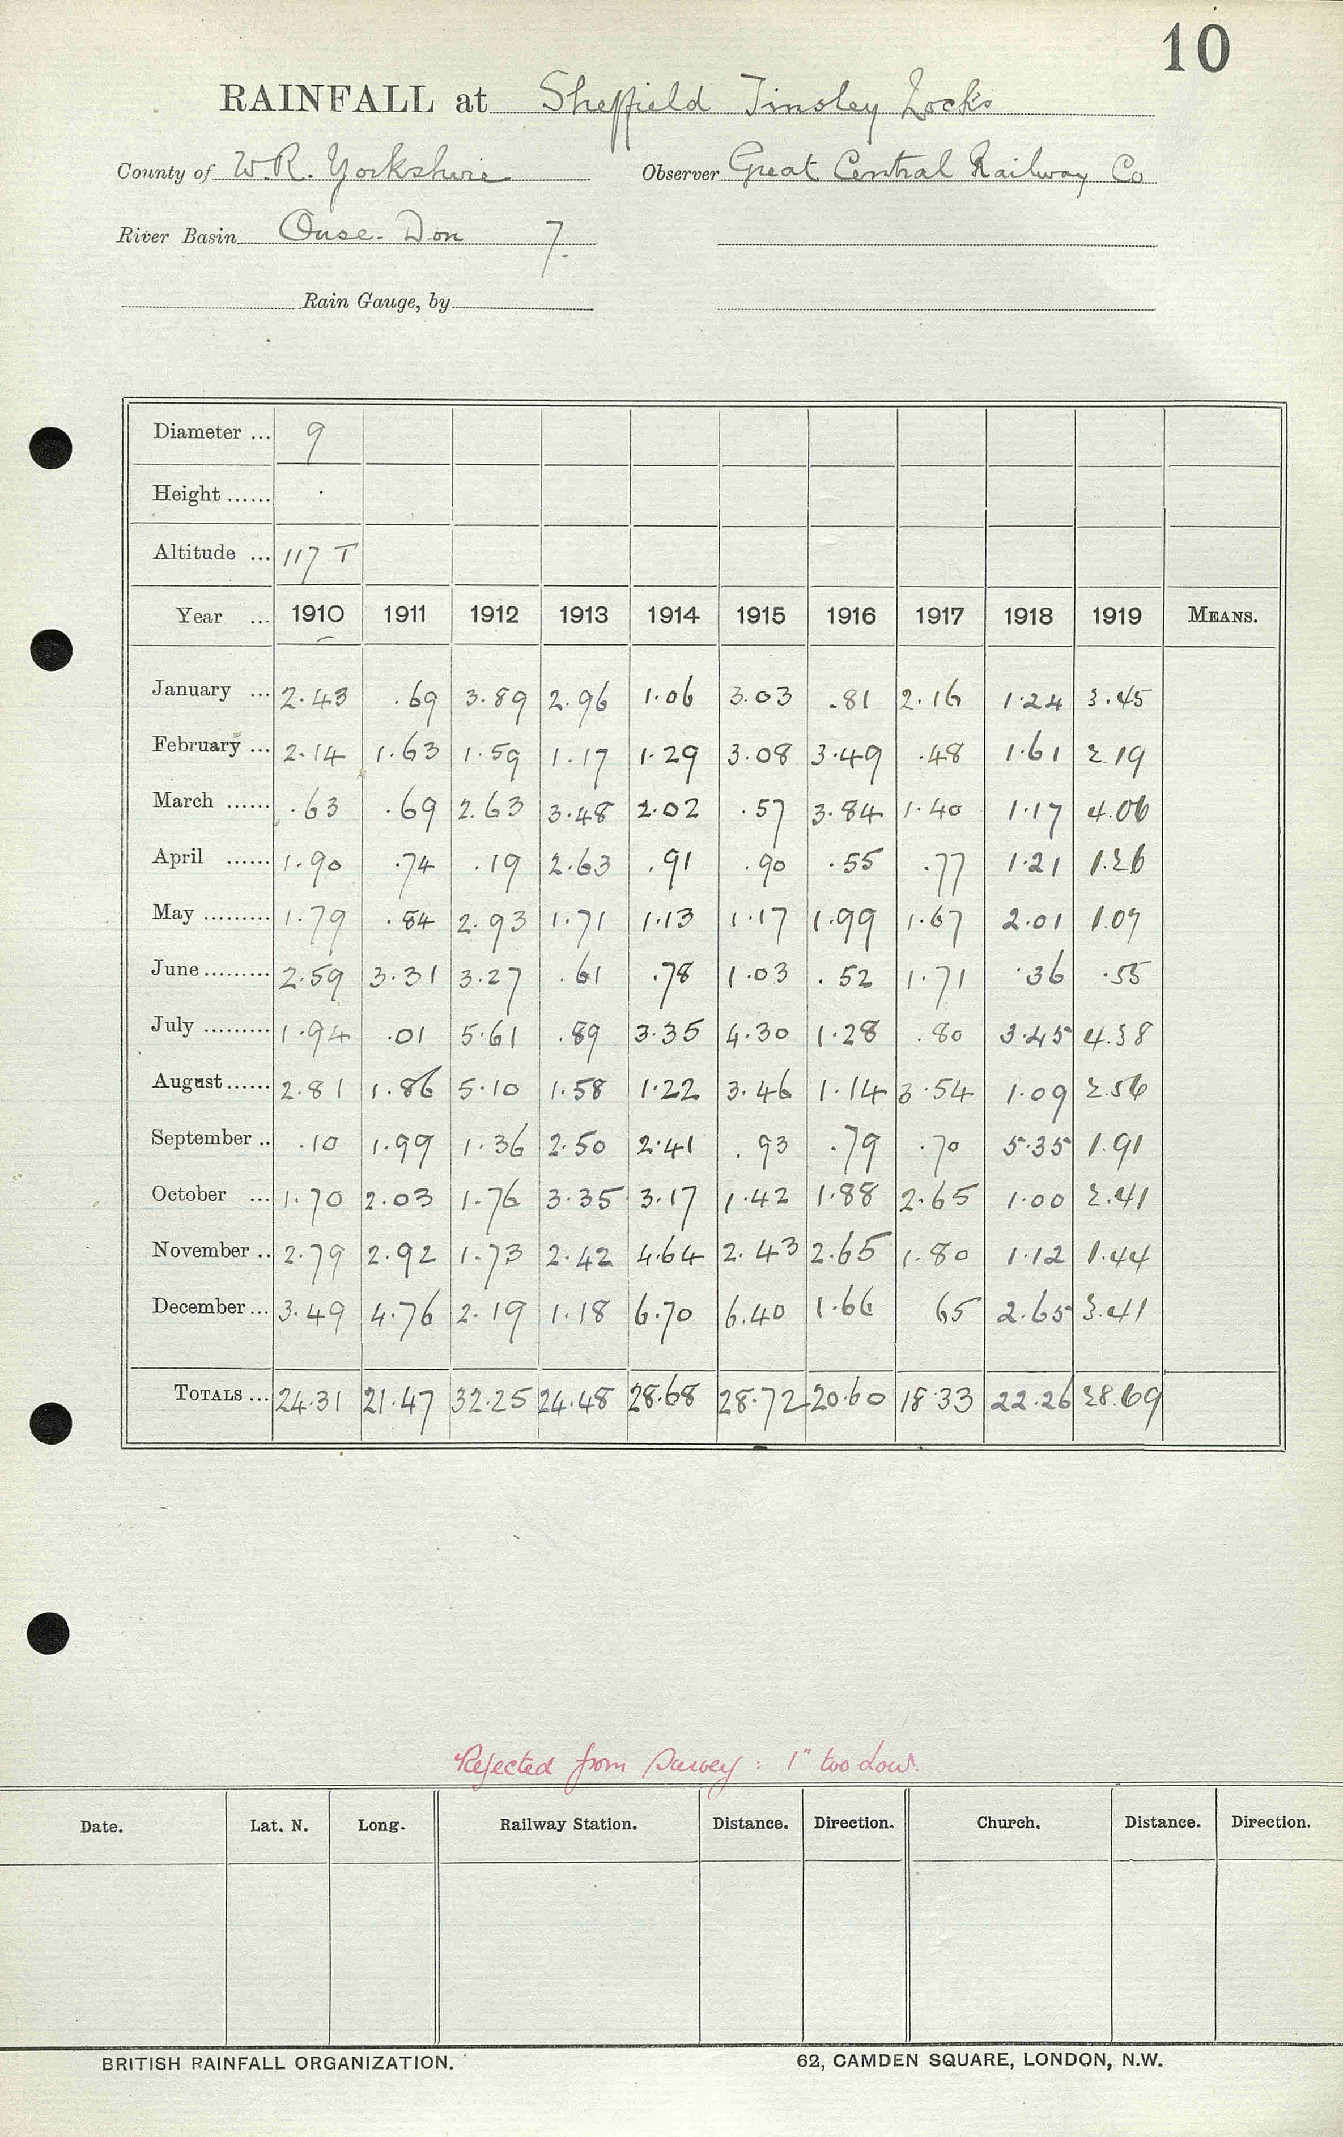 10
RAINFALL at Sheffield Tinsley Locks
County of W.R. Yorkshire Observer Great Central Railway Co
River Basin Ouse. Don 7.
Rain Gauge, by
Diameter ... 9
Height ...... .
Altitude ... 117 T
Year ... 1910 1911 1912 1913 1914 1915 1916 1917 1918 1919 MEANS.
January ... 2.43 .69 3.89 2.96 1.06 3.03 .81 2.16 1.24 3.45
February ... 2.14 1.63 1.59 1.17 1.29 3.08 3.49 .48 1.61 2 19
March ...... .63 .69 2.63 3.48 2.02 .57 3.84 1.40 1.17 4.06
April ...... 1.90 .74 .19 2.63 .91 .90 .55 .77 1.21 1.26
May ......... 1.79 .84 2.93 1.71 1.13 1.17 1.99 1.67 2.01 1.07
June ......... 2.59 3.31 3.27 .61 .78 1.03 .52 1.71 .36 .55
July ......... 1.94 .01 5.61 .89 3.35 4.30 1.28 .80 3.45 4.38
August ...... 2.81 1.86 5.10 1.58 1.22 3.46 1.14 3.54 1.09 2.56
September .. .10 1.99 1.36 2.50 2.41 .93 .79 .70 5.35 1.91
October ... 1.70 2.03 1.76 3.35 3.17 1.42 1.88 2.65 1.00 2.41
November .. 2.79 2.92 1.73 2.42 4.64 2.43 2.65 1.80 1.12 1.44
December ... 3.49 4.76 2.19 1.18 6.70 6.40 1.66 65 2.65 3.41
TOTALS ... 24.31 21.47 32.25 24.48 28.68 28.72 20.60 18.33 22.26 28.69
Rejected from Survey : 1" too low.
Date. Lat. N. Long. Railway Station. Distance. Direction. Church. Distance. Direction.
BRITISH RAINFALL ORGANIZATION. 62, CAMDEN SQUARE, LONDON, N.W.